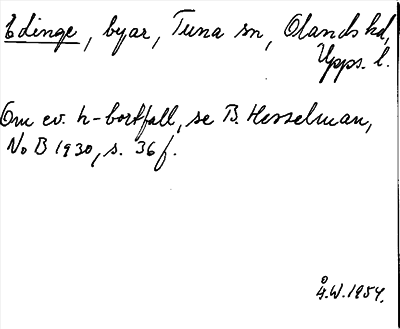 Edinge, byar, Tuna sn, Olands hd,
Upps. l.
Om ev. h-bortfall, se B. Hesselman,
NoB 1930, s. 36 f.
Å.W. 1954.